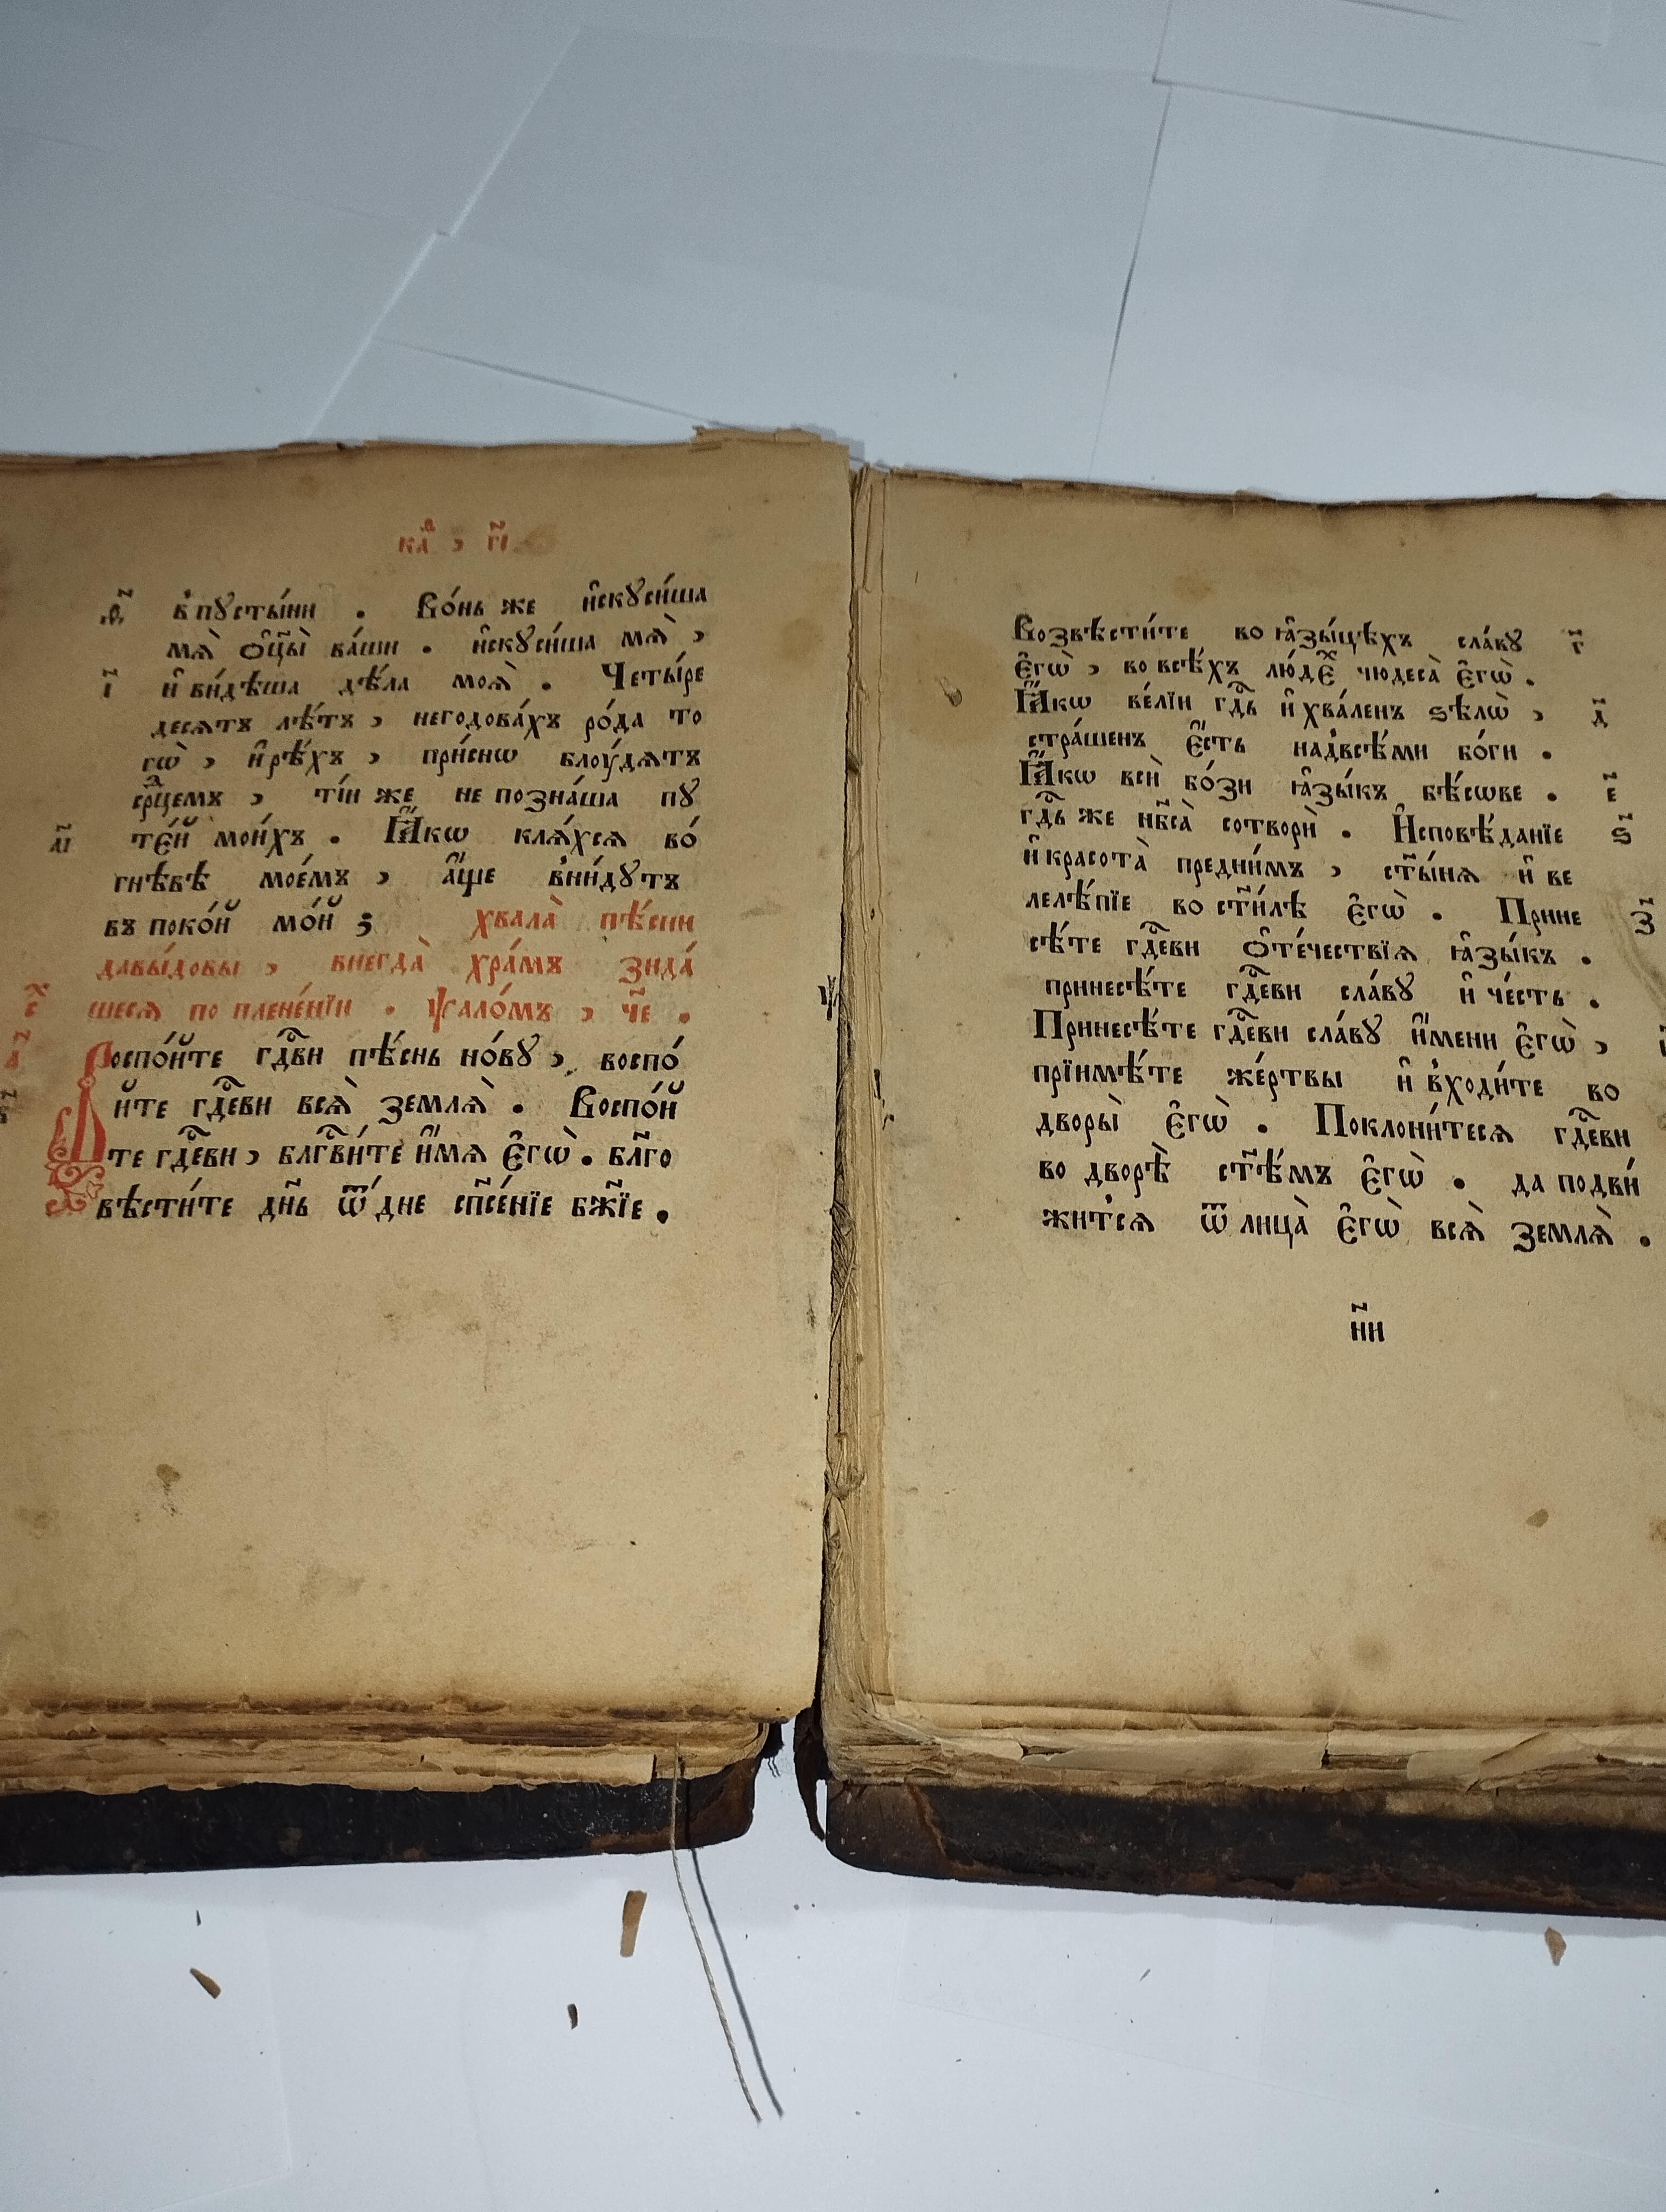 каⷴ҇ , г҃і
ѳ҃ в̾пꙋсты́ни . Во́нь же и҆скꙋси́ша
мѧ̀ ѻ҆ц҃ы̀ ва́ши . и҆скꙋси́ша мѧ̀ ,
і҃ и҆ ви́дѣша дѣ́ла моѧ̀ . Четы́ре
десѧтъ лѣ́тъ , негодова́хъ ро́да то
гѡ̀ , и҆ рѣ́хъ , при́снѡ блоу́дѧтъ
срⷣцемъ , ті́и же не позна́ша пꙋ
а҃і те́й мои́хъ . Ꙗ҆́кѡ клѧ́хсѧ во́
гнѣвѣ мое́мъ , а҆́ще вни́дꙋтъ
въ поко́й мо́й ; хвала̀ пѣ́сни
давы́довы , внегда̀ хра́мъ зида́
шесѧ по плене́нїи . ѱало́мъ , ч҃е .
Воспо́йте гдⷭ҇ви пѣ́снь но́вꙋ , воспо́
йте гдⷭ҇еви всѧ̀ землѧ̀ . Воспо́й
те гдⷭ҇еви , блгⷭ҇ви́те и҆́мѧ є҆гѡ̀ . бл҃го
вѣсти́те дн҃ь ѿ дне сп҃се́нїе бж҃їе .
Возвѣсти́те во ꙗ҆зы́цѣхъ сла́вꙋ г҃
є҆гѡ̀ , во всѣ́хъ лю́дєⷯ чюдеса̀ є҆гѡ̀ .
Ꙗ҆́кѡ ве́лїи гдⷭ҇ь и҆ хва́ленъ ѕѣлѡ̀ , д҃
стра́шенъ є҆́сть над̾всѣ́ми бо́ги .
Ꙗ҆́кѡ вси̑ бо́зи ꙗ҆зы́къ бѣ́сѡве . е҃
гдⷭ҇ь же нб҃са̀ сотворѝ . И҆сповѣ́данїе ѕ҃
и҆ красота̀ предни́мъ , ст҃ы́нѧ и҆ ве
лелѣ́пїе во ст҃и́лѣ є҆гѡ̀ . Прине з҃
сѣ́те гдⷭ҇еви ѻ҆те́чествїѧ ꙗ҆зы́къ .
принесѣ́те гдⷭ҇еви сла́вꙋ и҆ че́сть .
Принесѣ́те гдⷭ҇еви сла́вꙋ и҆́мени є҆гѡ̀ ,
прїимѣ́те же́ртвы и҆ в̾ходи́те во
дворы̀ є҆гѡ̀ . Поклони́тесѧ гдⷭ҇еви
во дворѣ̀ ст҃ѣ́мъ є҆гѡ̀ . да подви́
житсѧ ѿ лица̀ є҆гѡ̀ всѧ̀ землѧ̀ .
н҃и